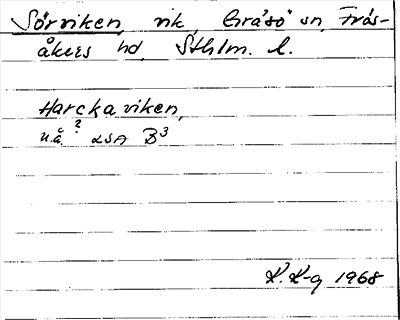 Sörviken, vik, Gräsö sn, Frös-
åkers hd, Sthlm. l.
Harckaviken,
u.å.? LSA B3
K. K-g 1968